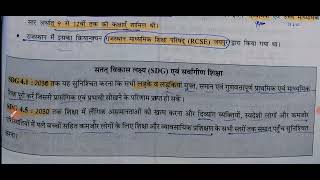 सर अर्थात् 9 से 12वीं तक की कक्षाएँ सम्मिल थी।
राजस्थान में इसका क्रियान्वयन राजस्थान माध्यमिक शिक्षा परिषद् (RCSE) जयपुर द्वारा किया गया था।
सतत् विकास लक्ष्य (SDG) एवं सर्वांगीण शिक्षा
SDG 4.1 : 2030 तक यह सुनिश्चित करना कि सभी लड़के व लड़कियां मुफ्त, समान एवं गुणवत्तापूर्ण प्राथमिक एवं माध्यमिक
पूर्ण करें जिससे प्रासंगिक एवं प्रभावी सीखने के परिणाम प्राप्त हो सकें।
SDG 4.5 : 2030 तक शिक्षा में लैंगिक असमानताओं को खत्म करना और दिव्यांग व्यक्तियों, स्वदेशी लोगों और कमजोर
परिस्थितियों में पले बच्चों सहित कमजोर लोगों के लिए शिक्षा और व्यावसायिक प्रशिक्षण के सभी स्तरों तक समान पहुँच सुनिश्चित
करना।